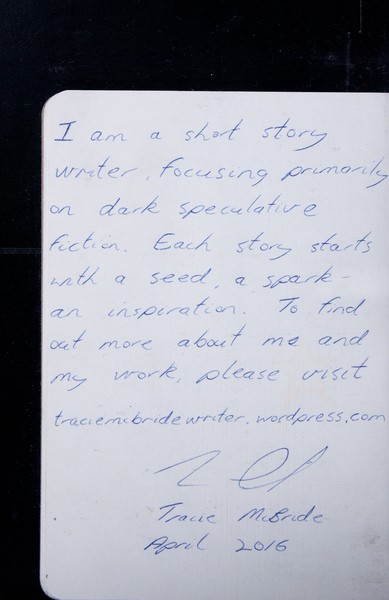 I am a short story
writer, focusing primarily
on dark speculative
fiction. Each story starts
with a seed, a spark-
an inspiration. To find
out more about me and
my work, please visit
traciemcbridewriter.wordpress.com
Tracie McBride
April 2016